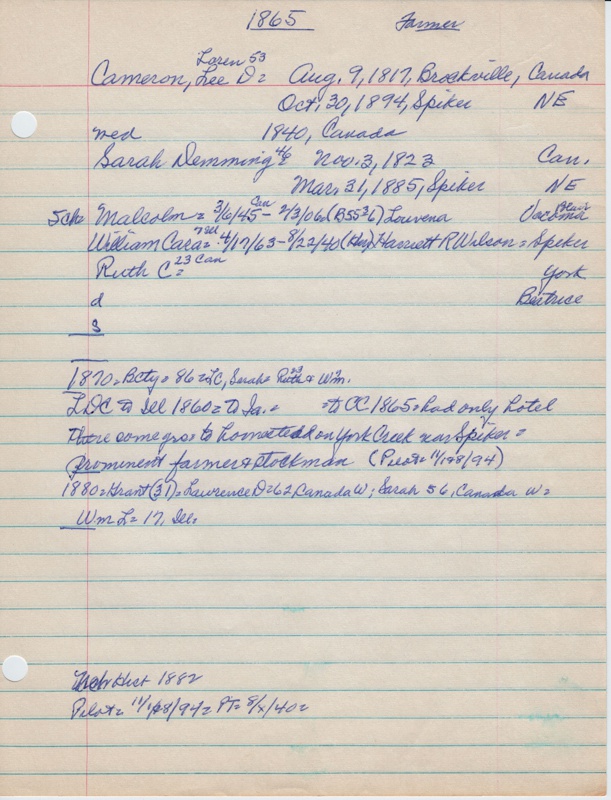 1865 Farmer
Loren 53
Cameron, Lee D= Aug. 9, 1817, Brockville, Canada
Oct. 30, 1894, Spiker NE
med 1840, Canada
Sarah Demming 48 Nov. 3, 1823 Can.
Mar. 31, 1885, Spiker NE
5ch= Malcolm= 3/6/45 Can - 2/3/06 (B5536) Louvena Vacoma Blair
William Cara= 4/17/63 - 8/22/40 Harriett R Wilson = Spiker
Ruth C= 23 Can York
d Beatrice
s
1870= Bcty= 86= LC, Sarah= Ruth 23 & Wm.
LDC to Ill 1860= to Ia.= =to OC 1865= had only hotel
there some yrs= to homestead on York Creek near Spiker=
prominent farmer & stockman (Pilot= 11/28/94)
1880= Grant (31)= Lawrence D= 62 Canada W; Sarah 56, Canada W=
Wm L= 17, Ill=
Hist 1882
Pilot= 11/28/94= PT= 8/x/40=